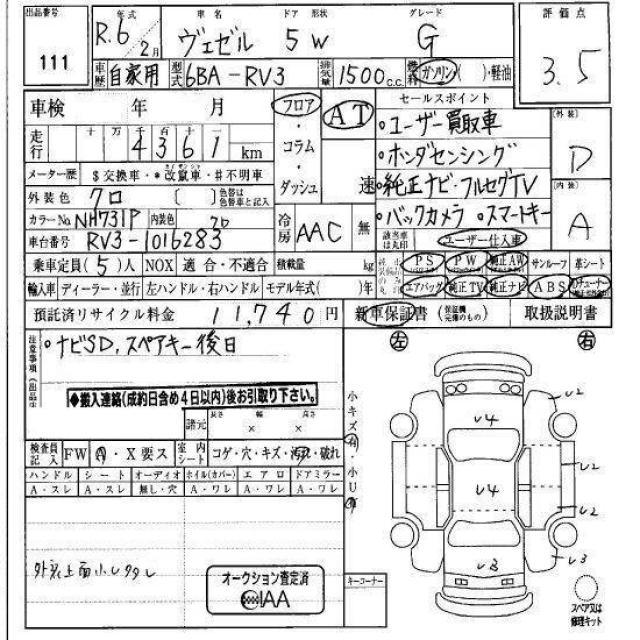 出品番号 111
年式 R.6 2月
車名 ヴェゼル
ドア 形状 5W
グレード G
評価点 3.5
車歴 自家用
型式 6BA-RV3
排気量 1500 c.c.
燃料 ガソリン( )・軽油
車検 年 月
走行 十 万 千 百 十 一
4 3 6 1 km
メーター歴 $交換車・*改竄車・#不明車
外装色 クロ 〔 〕 色替は色替車と記入
カラーNo. NH731P 内装色 クロ
車台番号 RV3-1016283
フロア・コラム・ダッシュ
AT 速
冷房 AAC 無
セールスポイント
・ユーザー買取車
・ホンダセンシング
・純正ナビ・フルセグTV
・バックカメラ ・スマートキー
該当車は丸印 ユーザー仕入車
外装 D
内装 A
乗車定員(5)人 NOX 適合・不適合 積載量 kg
PS PW 純正AW サンルーフ 革シート
輸入車 ディーラー・並行 左ハンドル・右ハンドル モデル年式( )年
エアバッグ 純正TV 純正ナビ ABS Dチューナー
預託済リサイクル料金 11,740円
新車保証書(保証継完備のもの) 取扱説明書
注意事項
・ナビSD,スペアキー後日
◆搬入連絡(成約日含め4日以内)後お引取り下さい。
諸元 長さ 幅 高さ
× ×
検査員記入 FW A・X要ス 室内シート コゲ・穴・キズ・汚れ・破れ
ハンドル シート オーディオ ホイル(カバー) エアロ ドアミラー
A・スレ A・スレ 無し・穴 A・ワレ A・ワレ A・ワレ
小キズA・小U
左 右
U2
U4
U2
U4
U2
U3
U3
外装上面小Uクタレ
オークション査定済
IAA
キーコーナー
スペア又は修理キット